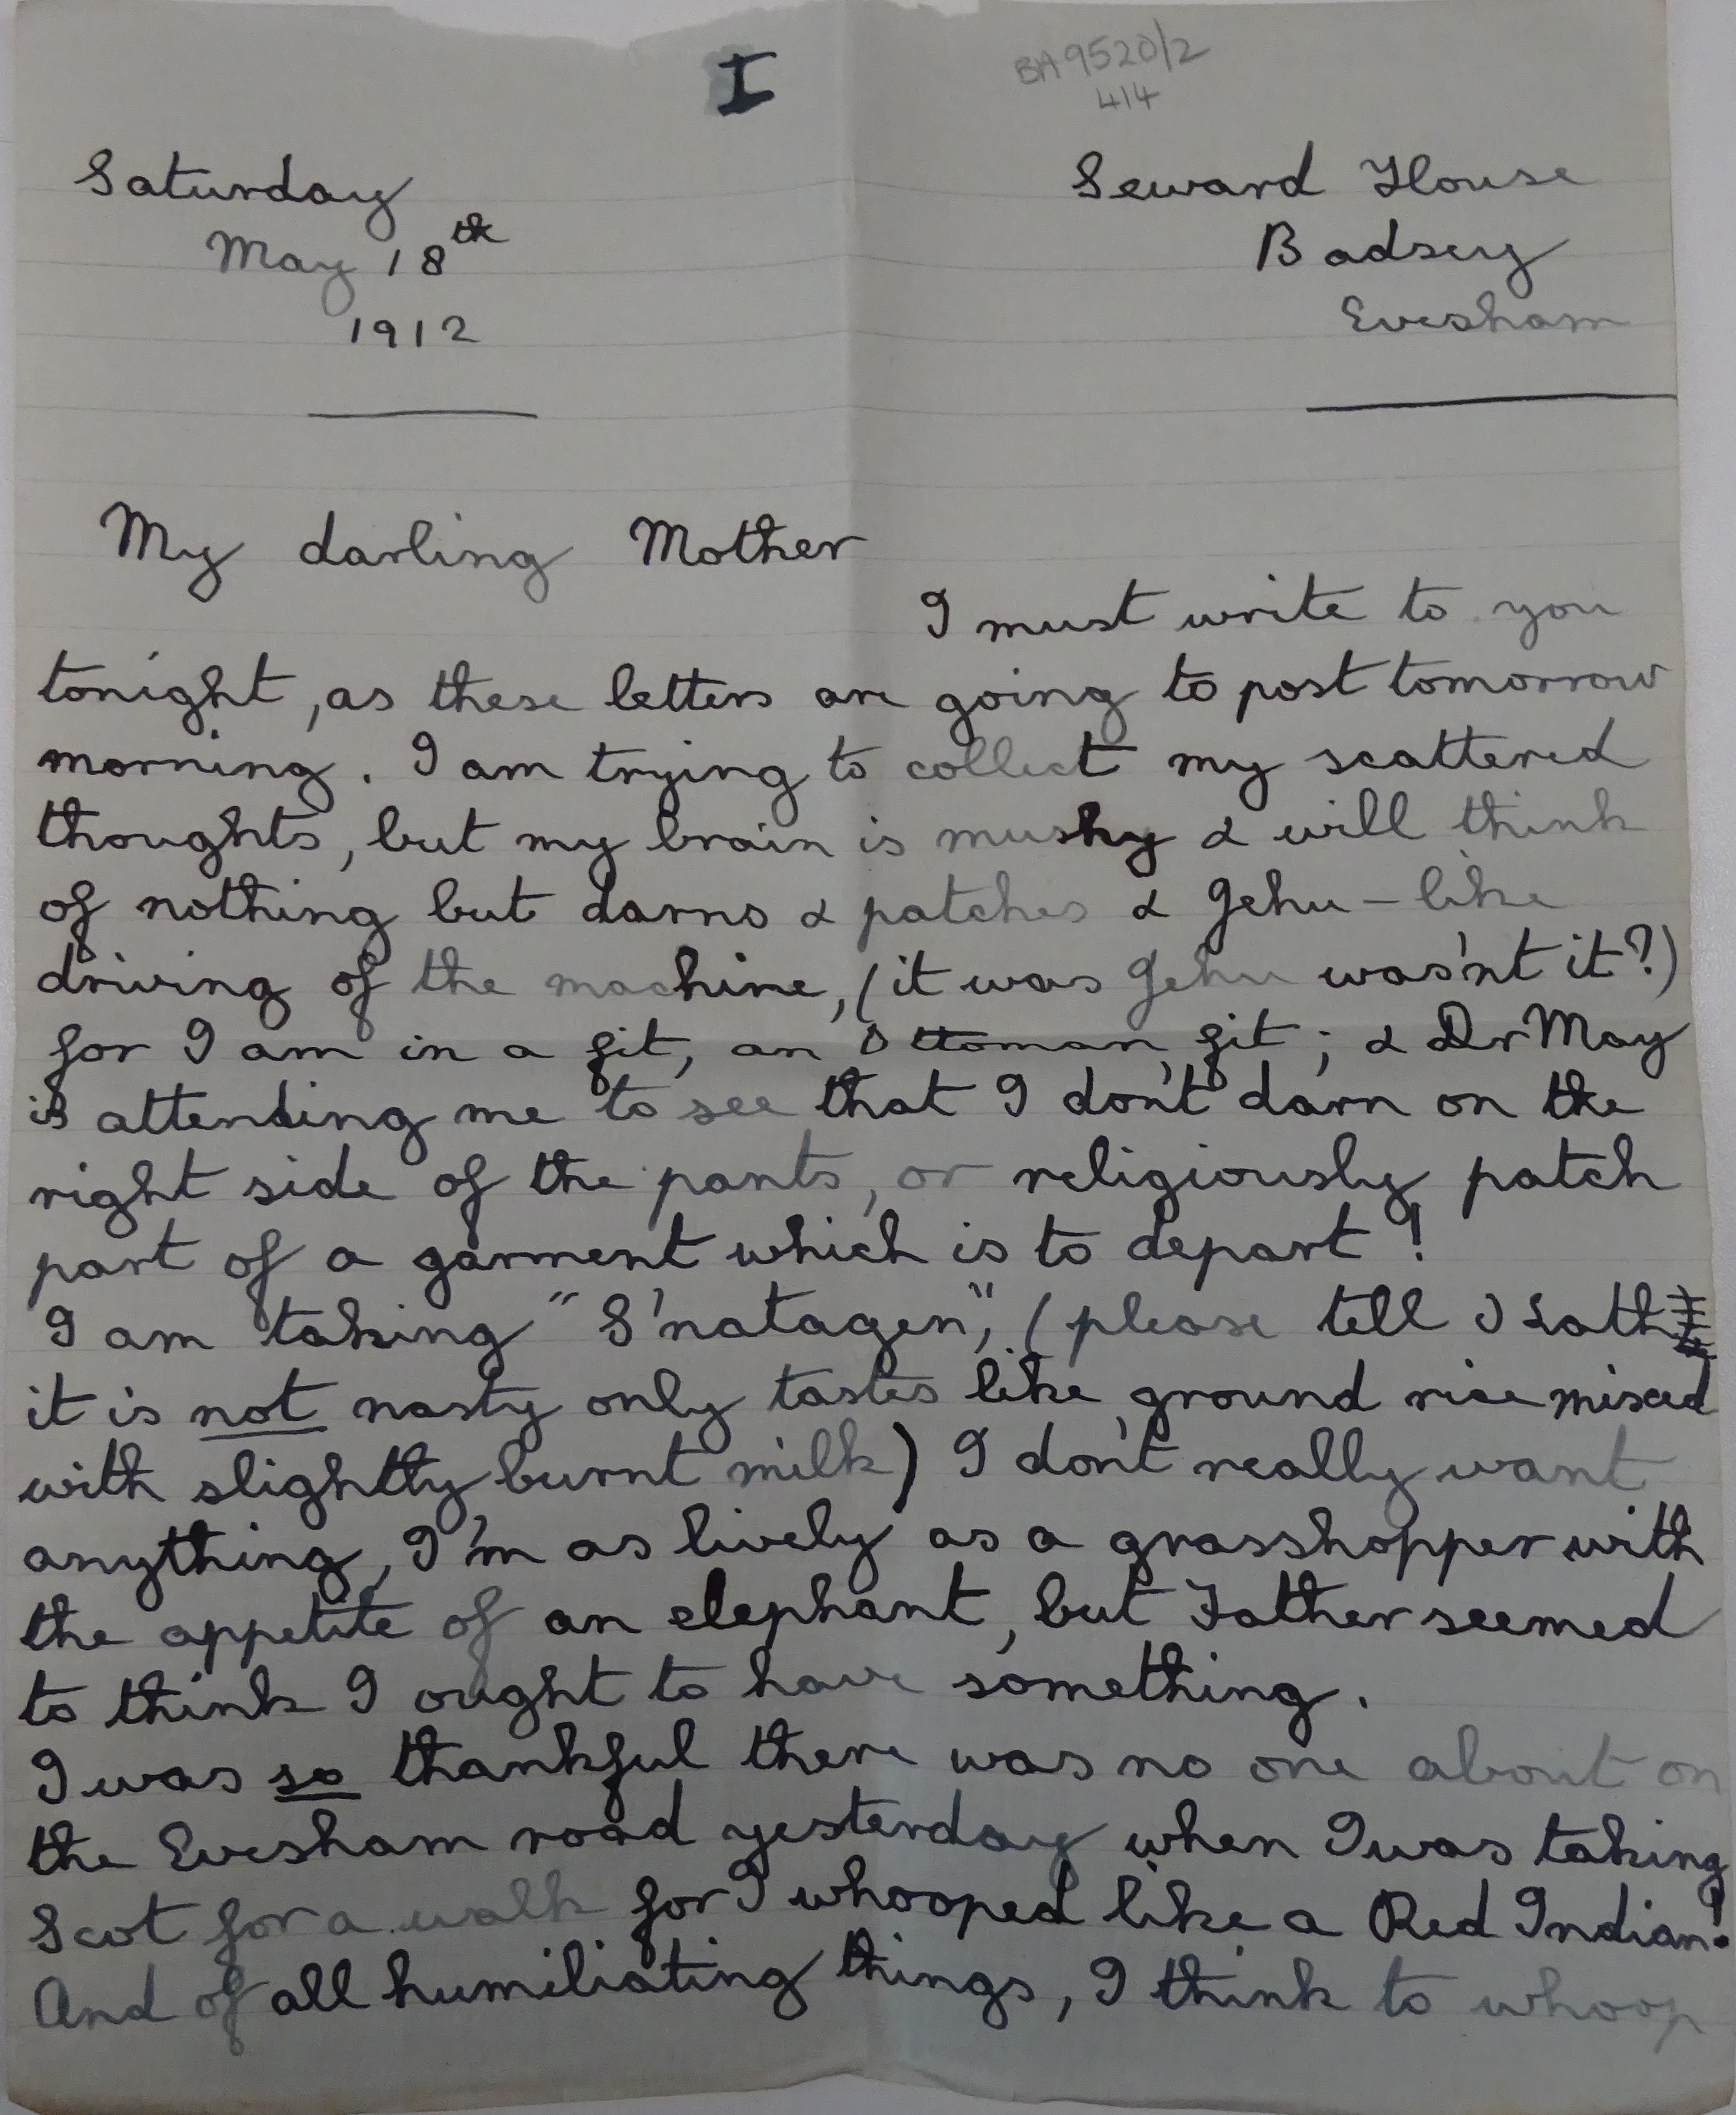 I
BA 9520/2
414
Saturday
May 18th
1912
Seward House
Badsey
Evesham
My darling Mother
I must write to you
tonight, as these letters are going to post tomorrow
morning. I am trying to collect my scattered
thoughts, but my brain is mushy & will think
of nothing but darns & patches & Jehu-like
driving of the machine, (it was Jehu was'nt it?)
for I am in a fit, an Ottoman fit; & Dr May
is attending me to see that I don't darn on the
right side of the pants, or religiously patch
part of a garment which is to depart!
I am taking "S'natagen", (please tell
it is not nasty only tastes like ground rice mixed
with slightly burnt milk) I don't really want
anything, I'm as lively as a grasshopper with
the appetite of an elephant, but Father seemed
to think I ought to have something.
I was so thankful there was no one about on
the Evesham road yesterday when I was taking
Scot for a walk for I whooped like a Red Indian!
And of all humiliating things, I think to whoop